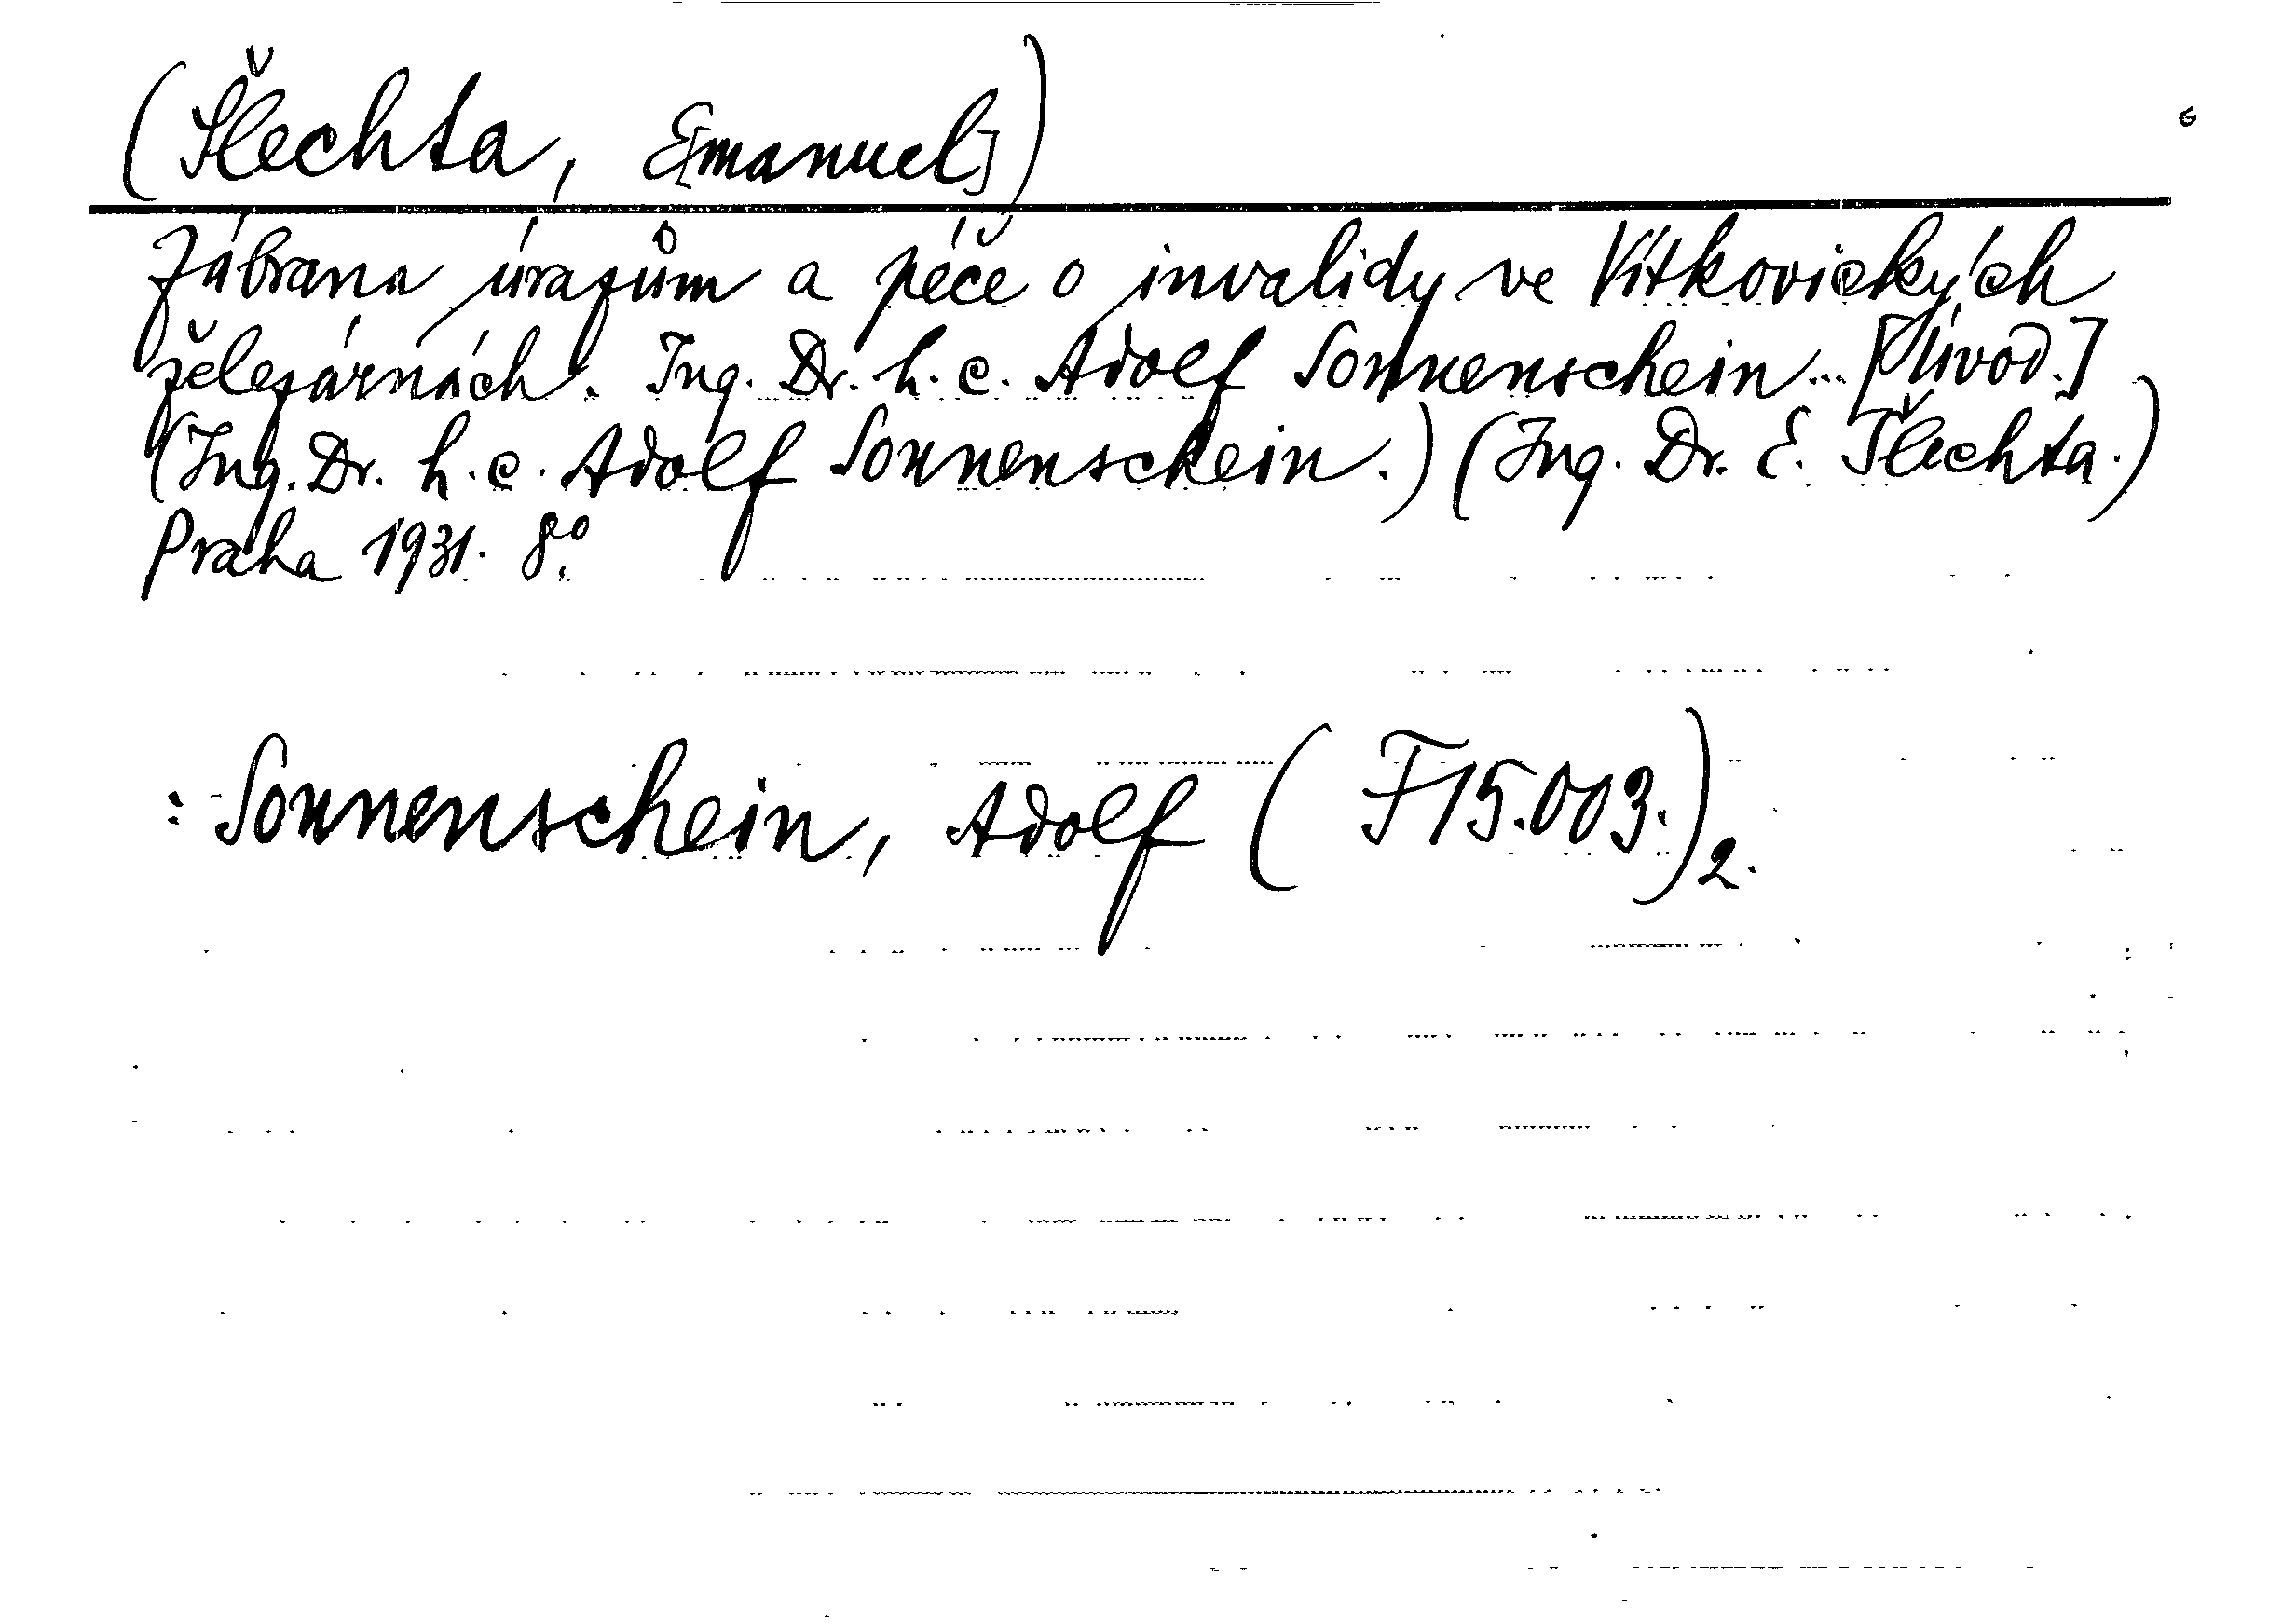 (Šlechta, E[manuel])
Zábrana úrazům a péče o invalidy ve Vítkovických
železárnách. Ing. Dr. h. c. Adolf Sonnenschein... [Úvod.]
(Ing. Dr. h. c. Adolf Sonnenschein.) (Ing. Dr. E. Šlechta.)
Praha 1931. 8°.
: Sonnenschein, Adolf (F15.003.)2.